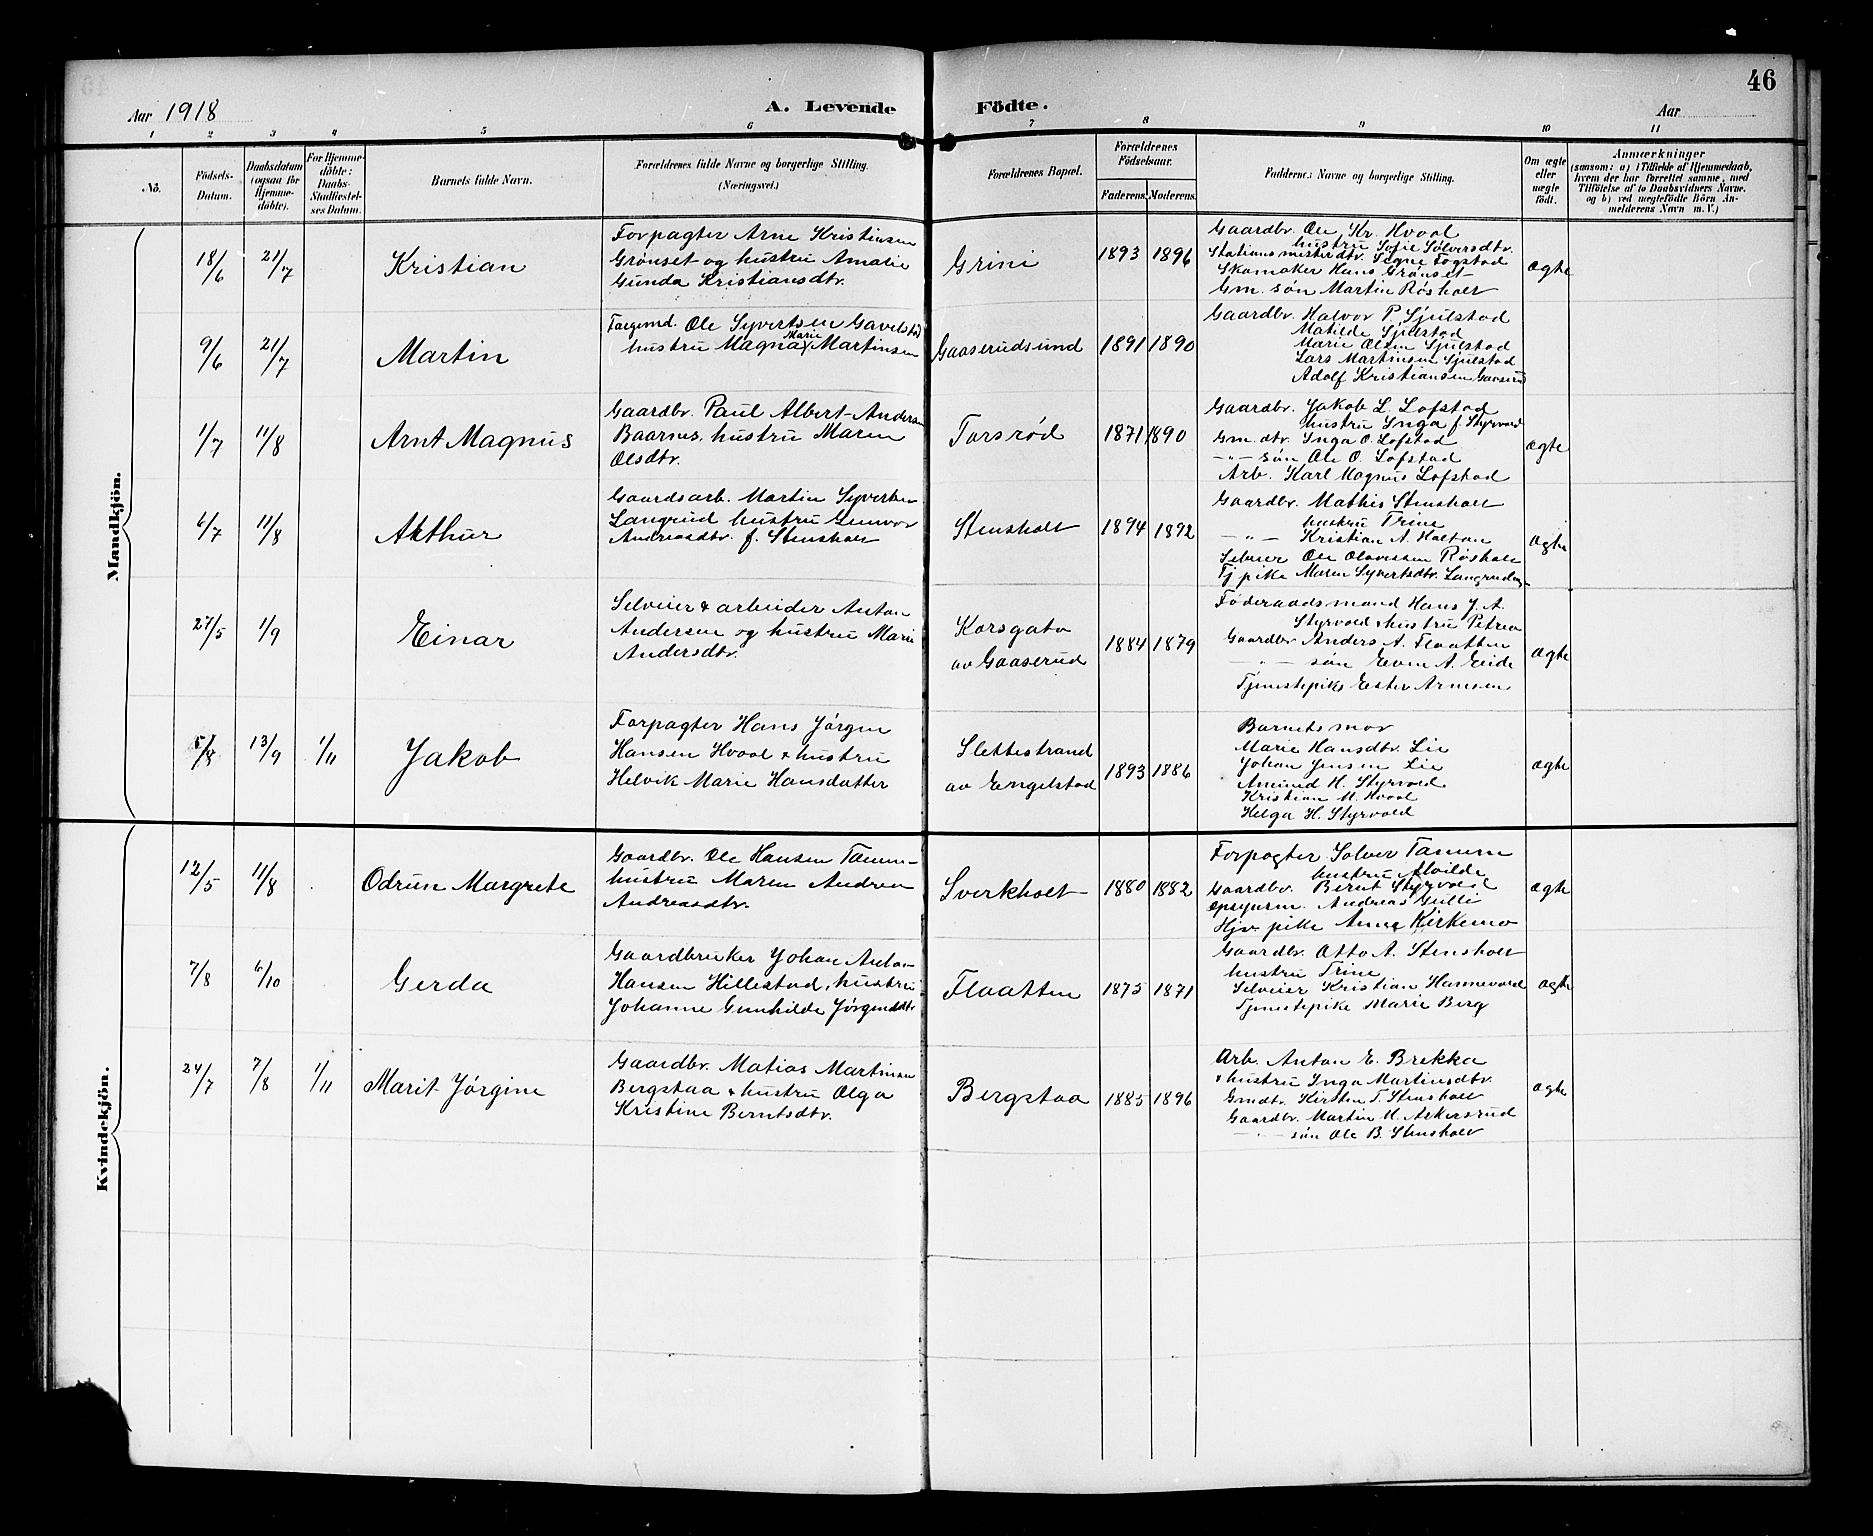 46
Aar 1918
A. Levende Födte.
Aar
1 2 3 4 5 6 7 8 9 10 11
No.
Födsels-Datum.
Daabsdatum (ogsaa for Hjemme-döbte).
For Hjemme-döbte: Daabs-Stadfæstel-ses Datum.
Barnets fulde Navn.
Forældrenes fulde Navne og borgerlige Stilling. (Næringsvei.)
Forældrenes Bopæl.
Forældrenes Födselsaar.
Faderens. Moderens.
Faddernes Navne og borgerlige Stilling.
Om ægte eller uægte födt.
Anmærkninger
(saasom: a) i Tilfælde af Hjemmedaab, hvem der har forrettet samme, med Tilföielse af to Daabsvidners Navne. og b) ved uægtefödte Börn Anmelderens Navn m. V.)
Mandkjön.
18/6 21/7 Kristian
Forpagter Arne Kristiansen
Grönset og hustru Amalie
Gunda Kristiansdtr.
Grini 1893 1896
Gaardbr. Ole Kr. Hvaal
hustru Sofie Sølversdtr.
Stationsmisterdtr. Signe Fogstad
Skomaker Hans Grønset
Gm. søn Martin Røsholt
ægte
9/6 21/7 Martin
Ole Syvertsen Gavelstad
hustru Magna Marie Martinsen
Gaaserudsund 1891 1890
Gaardbr. Halvor P. Sjulstad
Matilde Sjulstad
Marie Olsen Sjulstad
Lars Martinsen Sjulstad
Adolf Kristiansen Gaaserud
1/7 11/8 Arnt Magnus
Gaardbr. Paul Albert Anders
Baarnes, hustru Maren
Olsdtr.
Torsrød 1871 1890
Gaardbr. Jakob L. Lofstad
hustru Inga f. Styrvold
Gm. dtr. Inga O. Lofstad
-"- søn Ole O. Lofstad
Arb. Karl Magnus Lofstad
ægte
6/7 11/8 Arthur
Gaardsarb. Martin Syvertsen
Langrud hustru Gunvor
Andreasdtr. f. Stensholt
Stensholt 1894 1892
Gaardbr. Mathis Stensholt
hustru Trine
-"- Kristian A. Holtan
Selveier Ole Olavessen Røsholt
Tj pike Maren Syvertsdtr. Langrud
ægte
27/5 1/9 Einar
Selveier & arbeider Anton
Andersen og hustru Marie
Andersdtr.
Korsgata
av Gaaserud 1884 1879
Föderaadsmand Hans J. A.
Styrvold & hustru Petrea
Gaardbr Anders A. Flaatten
-"- søn Even A. Eide
Tjenestepike Ester Arnesen
ægte
5/8 13/9 1/11 Jakob
Forpagter Hans Jørgen
Hansen Hvaal & hustru
Helvik Marie Hansdatter
Slettestrand
av Engelstad 1893 1886
Barnets mor
Marie Hansdtr. Lie
Johan Jensen Lie
Amund H. Styrvold
Kristian M. Hvaal
Helga H. Styrvold
ægte
Kvindekjön.
12/5 11/8 Odrun Margrete
Gaardbr. Ole Hansen Tamm-
hustru Maren Andrea
Andreasdtr.
Sverkholt 1880 1882
Forpagter Solver Tamum
hustru Alvilde
Gaardbr. Bernt Styrvold
Opsynsm. Andreas Gulli
Hjv. pike Anna Kirkemo
ægte
7/8 6/10 Gerda
Gaardbruker Johan Anton
Hansen Hillestad, hustru
Johanne Gunhilde Jørgensdtr
Flaatten 1875 1871
Gaardbr. Otto A. Stensholt
hustru Trine
Selveier Kristian Hannevold
Tjenestepike Marie Berg
ægte
24/7 7/8 1/11 Marit Jørgine
Gaardbr. Matias Martinsen
Bergstaa & hustru Olga
Kristine Berntsdtr.
Bergstaa 1885 1896
Arb. Anton E. Brekka
& hustru Inga Martinsdtr.
Gmdtr. Kirsten T. Stensholt
Gaardbr. Martin M. Askersrud
-"- søn Ole B. Stensholt
ægte